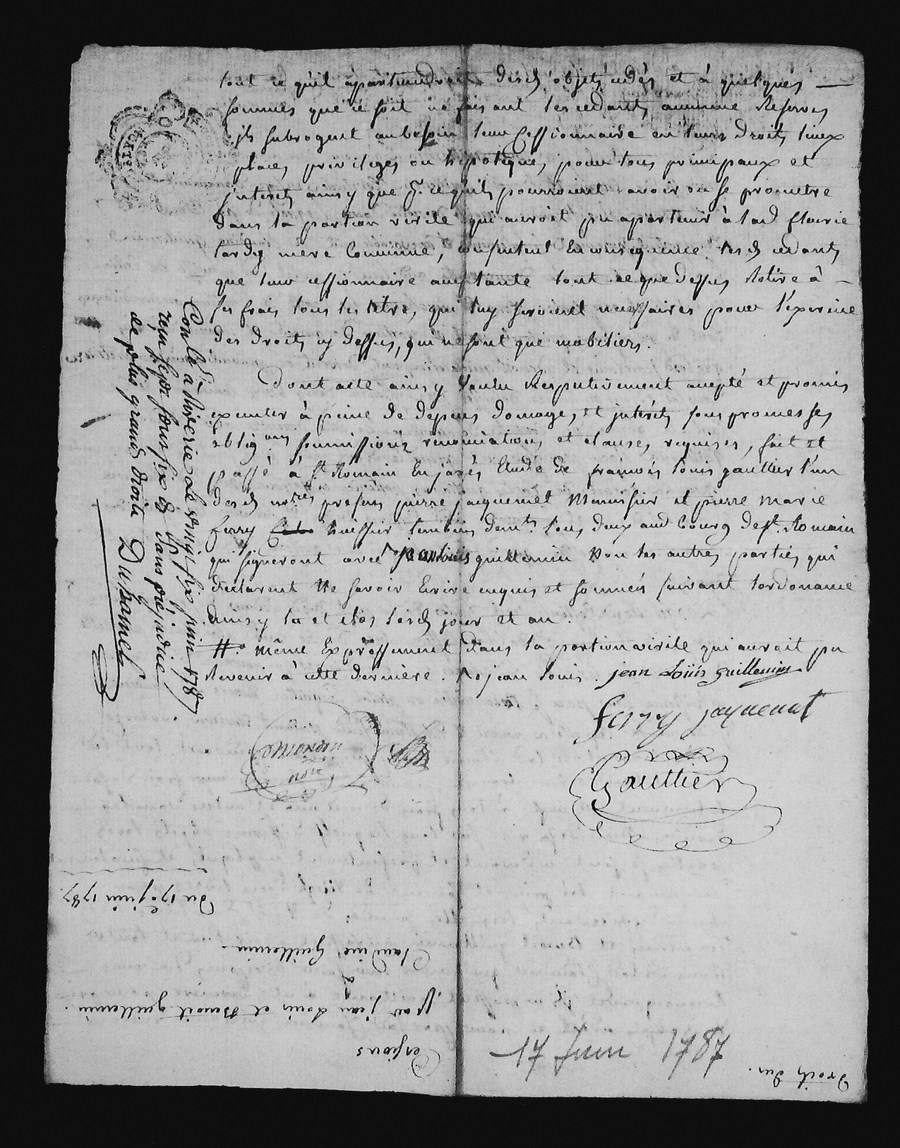 tout ce quil apartiendroit desd. objets cedés et à quelques
sommes que ce soit ne faisant les cedants aucune Reserves
ils subrogent au besoin leur Cessionnaire en leurs droits lieux
places, privileges ou hipoteques, pour tous principaux et
jnterets ainsy que ce quils pourroient avoir ou se prometre
dans la portion virile qui auroit pu apartenir à lad. fleurie
tardy mere Commune, consentent En consequence lesd. cedants
que leur cessionnaire acceptante tout ce que dessus Retire à
ses frais tous les titres, qui luy seroient necessaires pour l'exercice
des droits cy dessus, qui ne sont que mobiliers.
Dont acte ainsy Voulu Respectivement accepté et promis
executer à peine de depens domages, et jnterets sous promesses
oblig.ons soumissions renonciations et clauses requises, fait et
passé à St. Romain En jarés Etude de françois Louis gaultier l'un
desd. no.res présens pierre jacquemet Menuisier et pierre marie
ferry huissier temoins dem.ts tous deux aud. bourg de St. Romain
qui signeront avec jean louis guillemin non les autres parties qui
declarent Ne savoir Ecrire enquis et sommés suivant lordonance
ainsy lu et clos lesd. jour et an.
# même Expressement dans la portion virile qui auroit pu
Revenir à cette derniere. jean louis. jean Loüis guillemin
ferry jaquemet
Gaulttier
Mondon
no.re
Con.lé à Riverie Le vingt six juin 1787
reçu sans prejudice
de plus grands droits Duhamel
17 Juin 1787
Droits dus.
Cessions
Par jean Louis et Benoit guillemin.
à
Claudine Guillemin.
Du 17e. juin 1787.